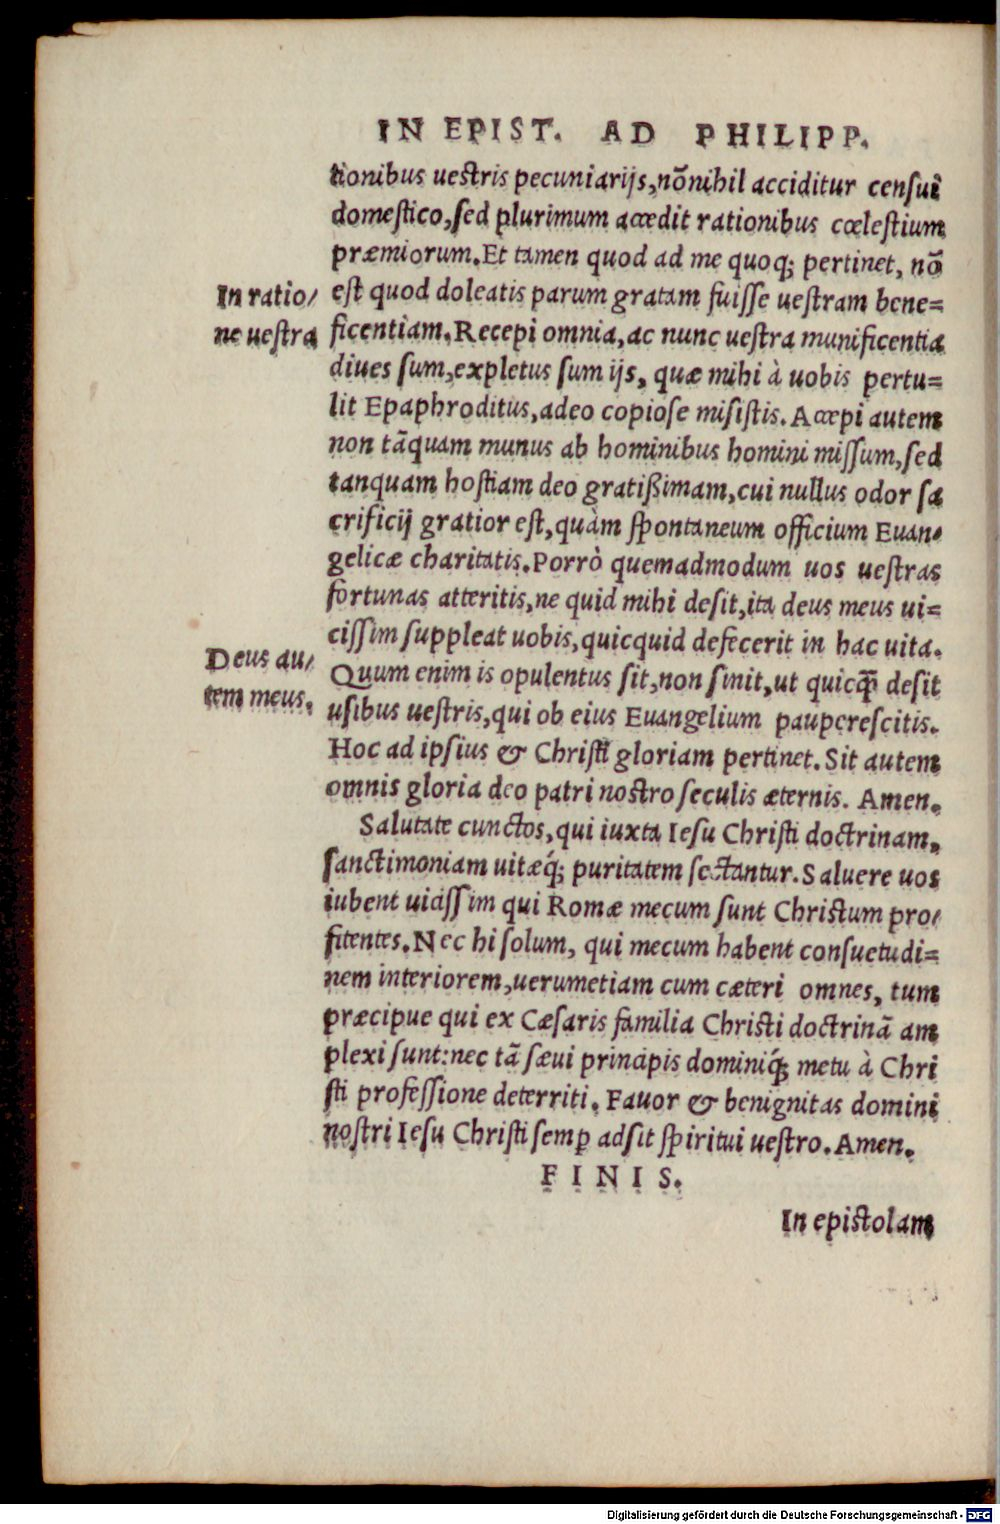 IN EPIST. AD PHILIPP.
tionibus uestris pecuniarijs, nõnihil acciditur censui
domestico, sed plurimum accedit rationibus cœlestium
præmiorum. Et tamen quod ad me quoq; pertinet, nõ
In ratio/
est quod doleatis parum gratam fuisse uestram bene=
ne uestra
ficentiam. Recepi omnia, ac nunc uestra munificentia
diues sum, expletus sum ijs, quæ mihi à uobis pertu=
lit Epaphroditus, adeo copiose misistis. Accepi autem
non tãquam munus ab hominibus homini missum, sed
tanquam hostiam deo gratißimam, cui nullus odor sa
crificij gratior est, quàm spontaneum officium Euan/
gelicæ charitatis. Porrò quemadmodum uos uestras
fortunas atteritis, ne quid mihi desit, ita deus meus ui=
cissim suppleat uobis, quicquid defecerit in hac uita.
Deus au/
Quum enim is opulentus sit, non sinit, ut quicq̃ desit
tem meus.
usibus uestris, qui ob eius Euangelium pauperescitis.
Hoc ad ipsius & Christi gloriam pertinet. Sit autem
omnis gloria deo patri nostro seculis æternis. Amen.
Salutate cunctos, qui iuxta Iesu Christi doctrinam,
sanctimoniam uitæq́; puritatem sectantur. Saluere uos
iubent uicissim qui Romæ mecum sunt Christum pro/
fitentes. Nec hi solum, qui mecum habent consuetudi=
nem interiorem, uerumetiam cum cæteri omnes, tum
præcipue qui ex Cæsaris familia Christi doctrinã am
plexi sunt: nec tã sæui principis dominiq́; metu à Chri
sti professione deterriti. Fauor & benignitas domini
nostri Iesu Christi semꝑ adsit spiritui uestro. Amen.
FINIS.
In epistolam
Digitalisierung gefördert durch die Deutsche Forschungsgemeinschaft - DFG